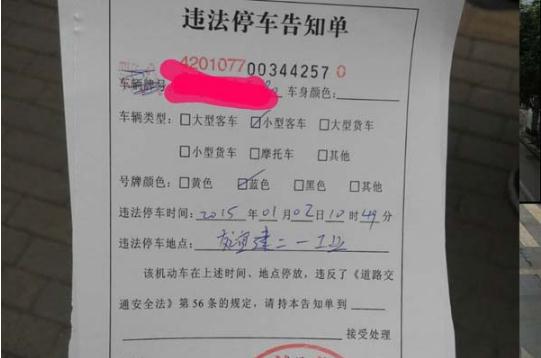 违法停车告知单
4201077 00344257 0
车辆牌号 车身颜色:
车辆类型: □大型客车 ☑小型客车 □大型货车
□小型货车 □摩托车 □其他
号牌颜色: □黄色 ☑蓝色 □黑色 □其他
违法停车时间: 2015 年 01 月 02 日 10 时 49 分
违法停车地点: 二一
该机动车在上述时间、地点停放，违反了《道路交
通安全法》第 56 条的规定，请持本告知单到
接受处理